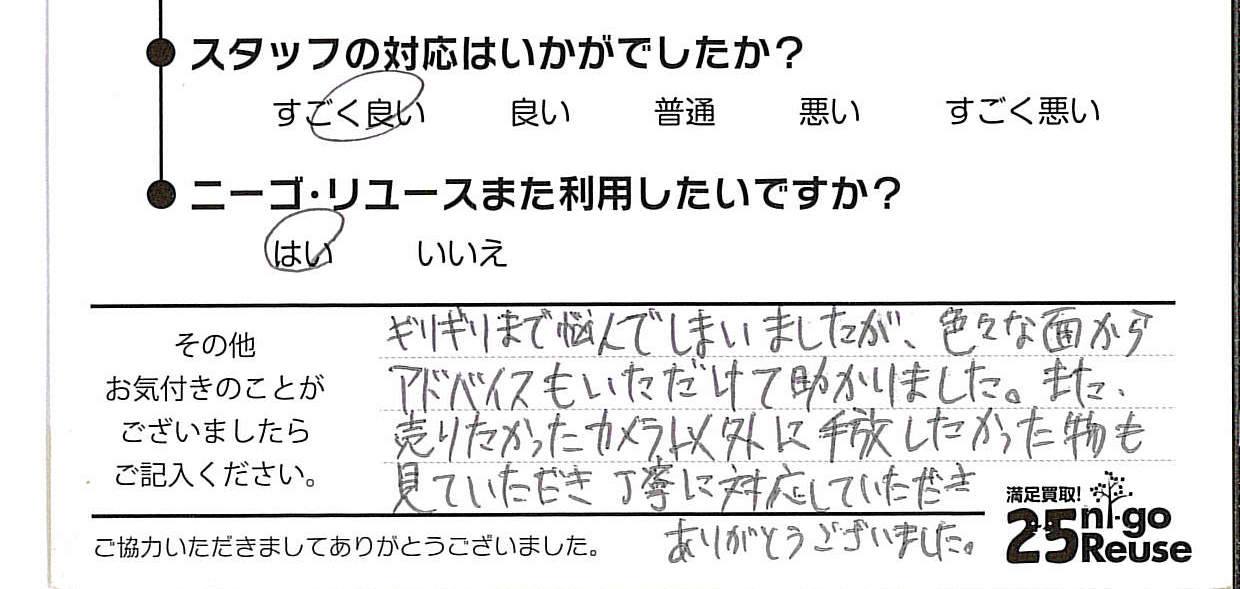 スタッフの対応はいかがでしたか?
すごく良い 良い 普通 悪い すごく悪い
ニーゴ・リユースまた利用したいですか?
はい いいえ
その他
お気付きのことが
ございましたら
ご記入ください。
ギリギリまで悩んでしまいましたが、色々な面から
アドバイスもいただけて助かりました。また、
売りたかったカメラ以外に手放したかった物も
見ていただき丁寧に対応していただき
ありがとうございました。
ご協力いただきましてありがとうございました。
満足買取!
25 ni-go
Reuse